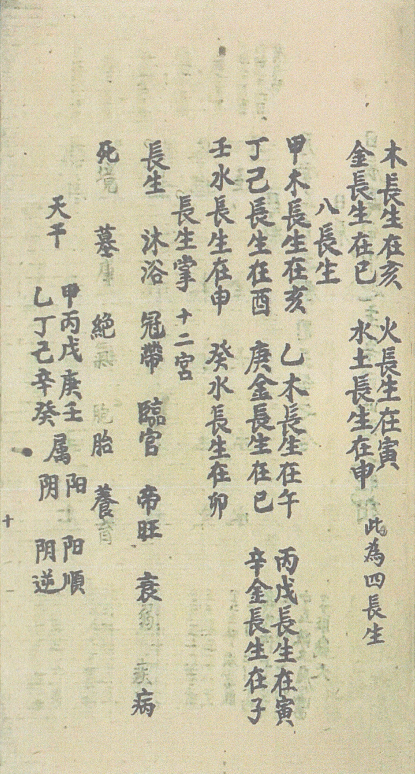 木長生在亥　火長生在寅
金長生在巳　水土長生在申　此為四長生
八長生
甲木長生在亥　乙木長生在午　丙戊長生在寅
丁己長生在酉　庚金長生在巳　辛金長生在子
壬水長生在申　癸水長生在卯
長生掌　十二宮
長生　沐浴　冠帶　臨官　帝旺　衰　病
死　墓　絕　胎　養
天干　甲丙戊庚壬　属阳　阳順
乙丁己辛癸　阴　阴逆
十